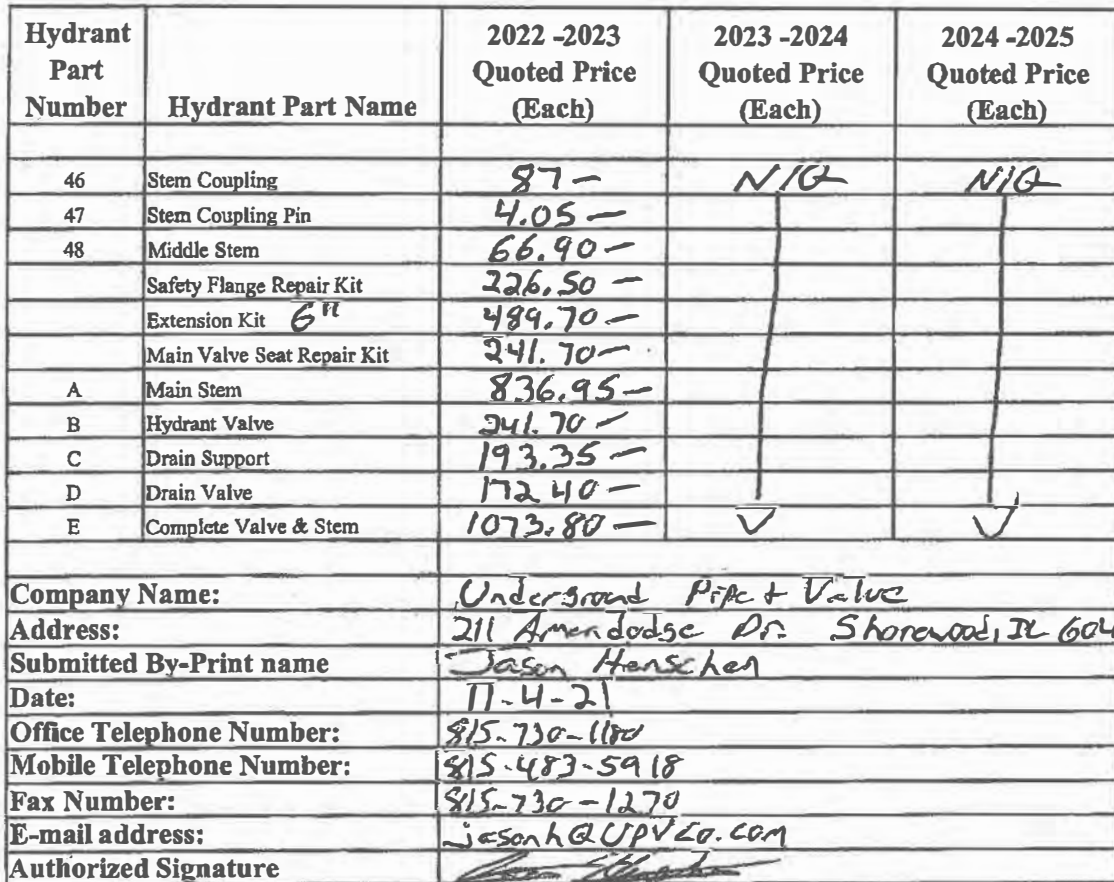 Hydrant Part Number Hydrant Part Name 2022 -2023 Quoted Price (Each) 2023 -2024 Quoted Price (Each) 2024 -2025 Quoted Price (Each)
46 Stem Coupling 87 — N/Q N/Q
47 Stem Coupling Pin 4.05 —
48 Middle Stem 66.90 —
Safety Flange Repair Kit 226.50 —
Extension Kit 6" 489.70 —
Main Valve Seat Repair Kit 241.70 —
A Main Stem 836.95 —
B Hydrant Valve 241.70 —
C Drain Support 193.35 —
D Drain Valve 172.40 —
E Complete Valve & Stem 1073.80 —
Company Name: Underground Pipe + Valve
Address: 211 Amendodge Dr. Shorewood, IL 604
Submitted By-Print name Jason Henschen
Date: 11-4-21
Office Telephone Number: 815-730-1180
Mobile Telephone Number: 815-483-5918
Fax Number: 815-730-1270
E-mail address: jasonh@UPVCo.com
Authorized Signature